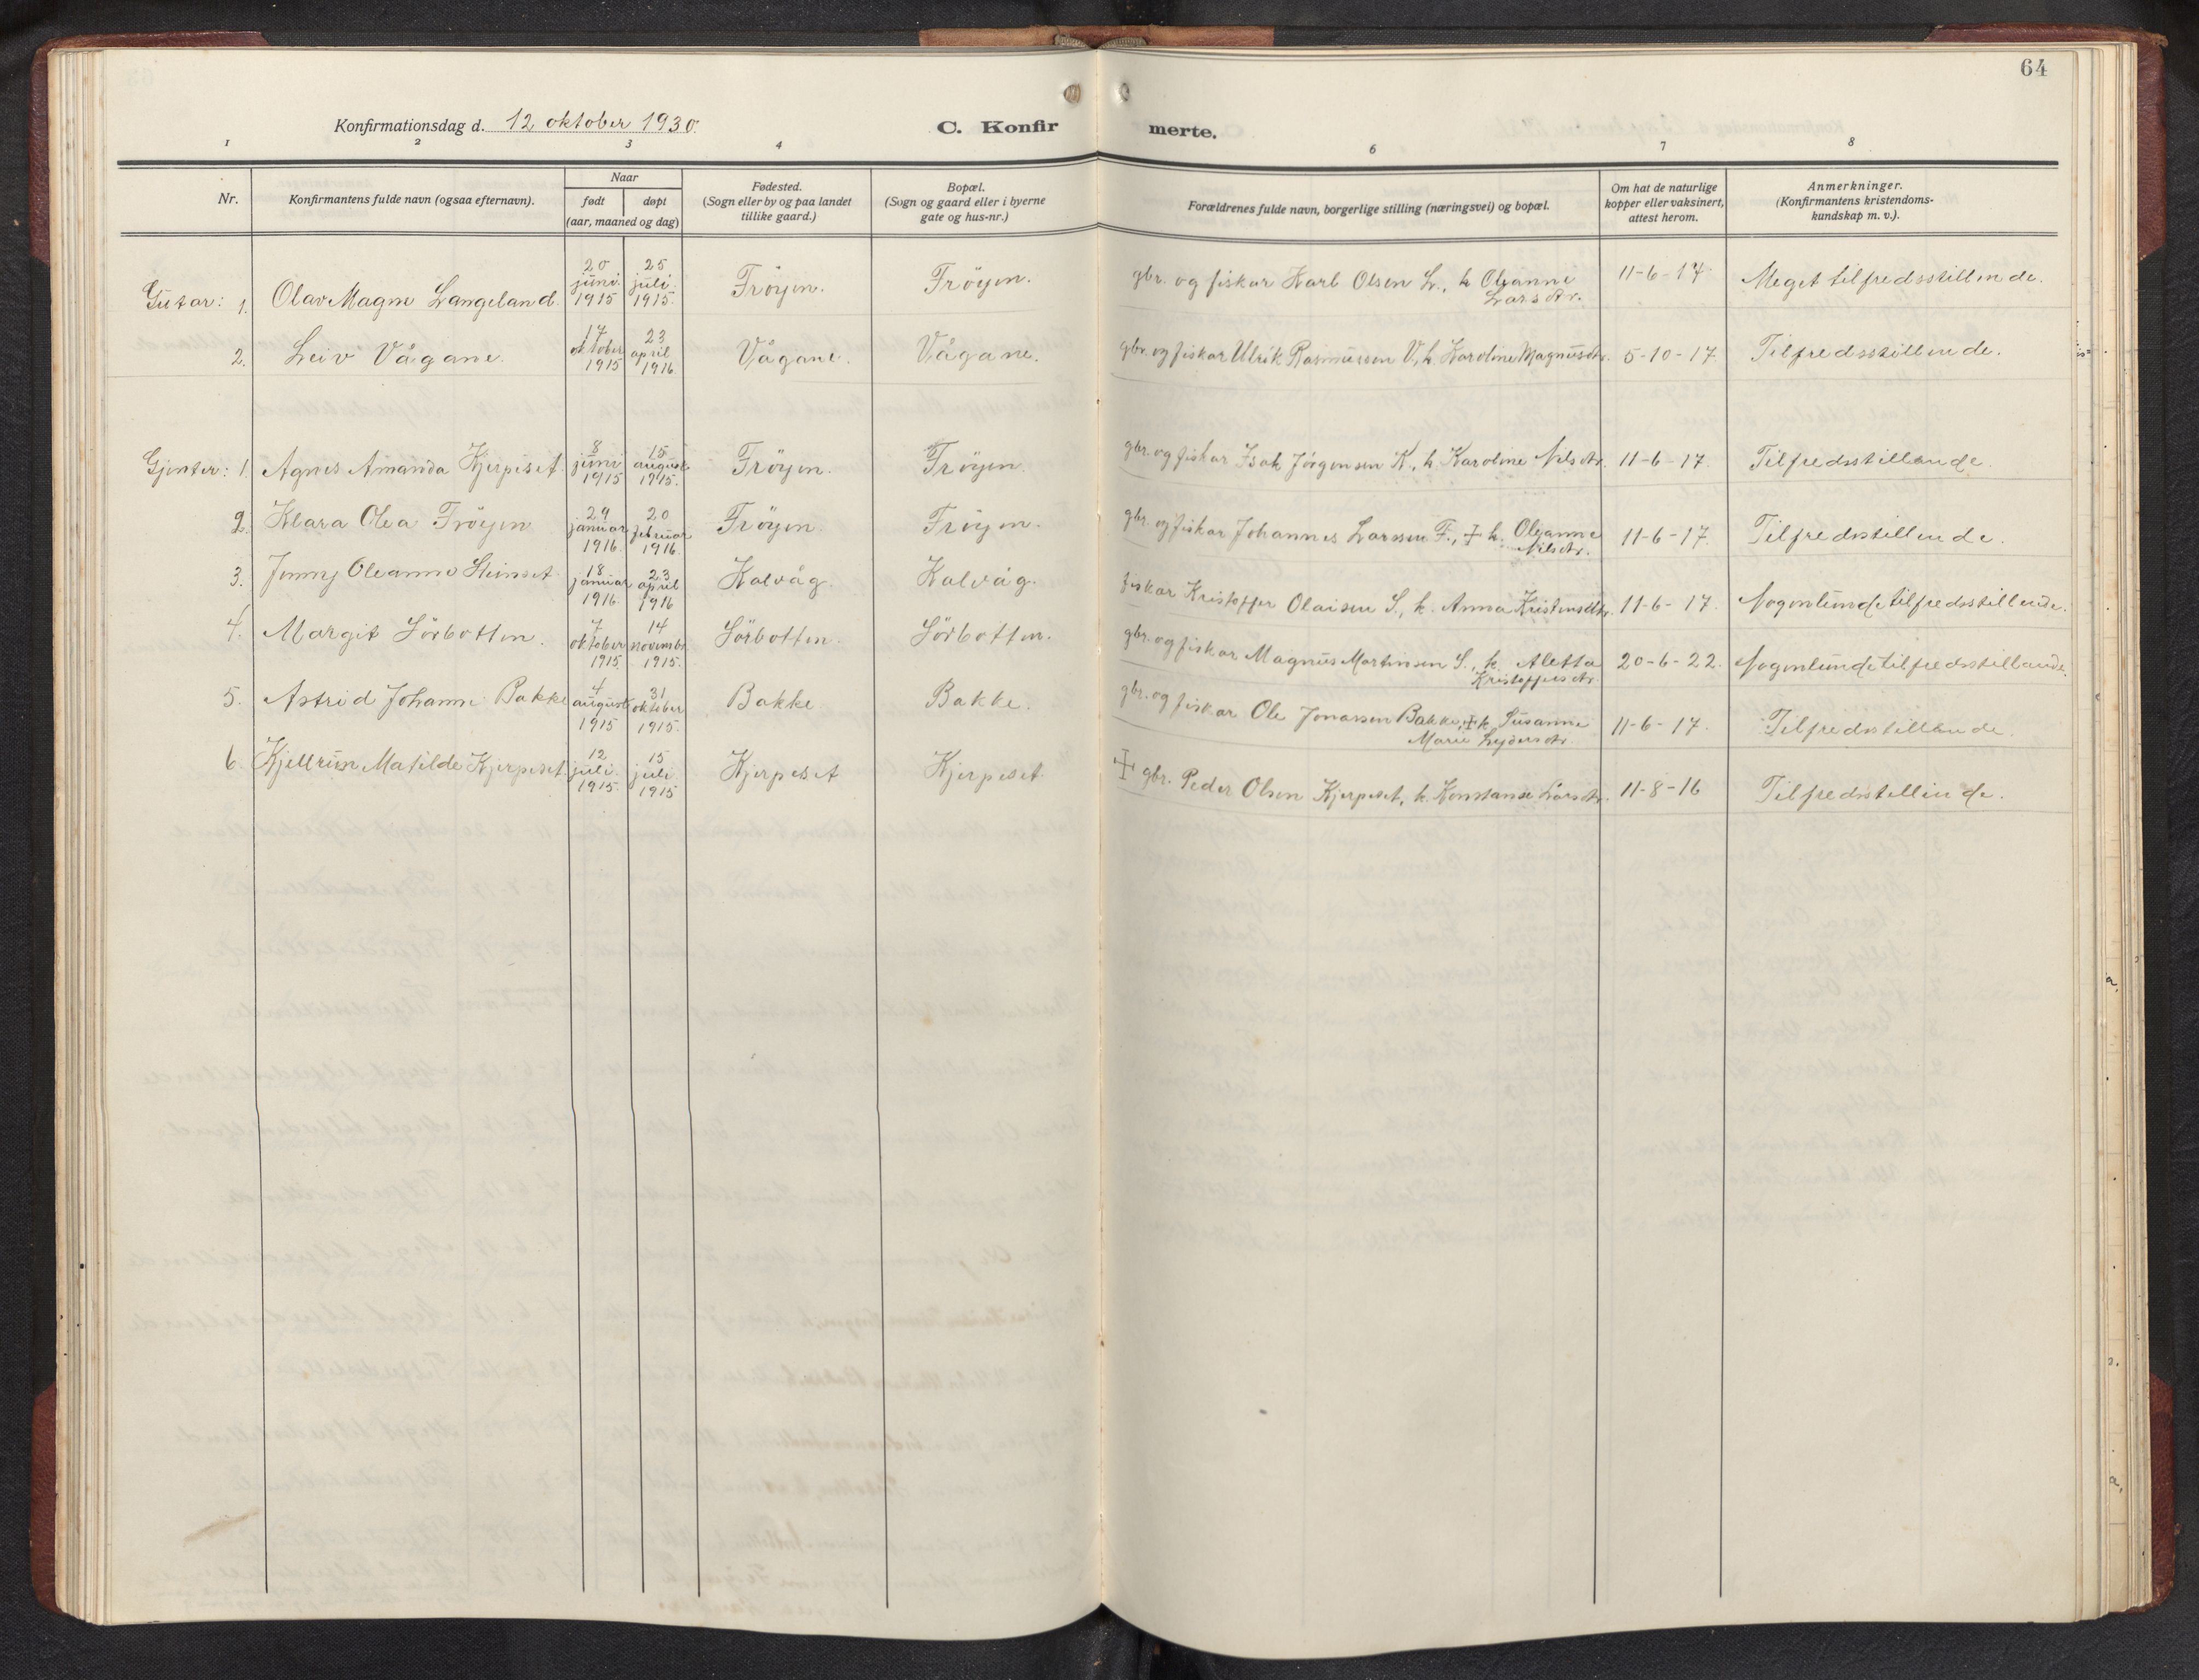 64
Konfirmationsdag d. 12 oktober 1930.
C. Konfirmerte.
1 2 3 4 6 7 8
Nr. Konfirmantens fulde navn (ogsaa efternavn). Naar født døpt (aar, maaned og dag) Fødested. (Sogn eller by og paa landet tillike gaard.) Bopæl. (Sogn og gaard eller i byerne gate og hus-nr.) Forældrenes fulde navn, borgerlige stilling (næringsvei) og bopæl. Om hat de naturlige kopper eller vaksinert, attest herom. Anmerkninger. (Konfirmantens kristendomskundskap m. v.).
Gutar: 1. Olav Magne Langeland. 20 juni 1915 25 juli 1915. Fröyen. Fröyen. gbr. og fiskar Karl Olsen L., h Oleanne Larsdtr. 11-6-17 Meget tilfredsstillende.
2. Leiv Vågane. 17 oktober 1915 23 april 1916. Vågane. Vågane. gbr. og fiskar Ulrik Rasmussen V., h. Karoline Magnusdtr. 5-10-17. Tilfredsstillende.
Gjenter: 1 Agnes Amanda Kjerpeset 8 juni 1915 15 august 1915. Fröyen. Fröyen. gbr. og fiskar Isak Jörgensen K., h. Karoline Nilsdtr. 11-6-17. Tilfredsstillande.
2. Klara Olea Fröyen 29 januar 1916. 20 februar 1916. Fröyen. Fröyen. gbr. og fiskar Johannes Larssen F., + h. Oleanne Nilsdtr. 11-6-17. Tilfredsstillende.
3. Jenny Oleanne 18 januar 1916 23 april 1916 Kalvåg. Kalvåg. fiskar Kristoffer Olaisen S., h. Anna Kristensdtr. 11-6-17. Nogenlunde tilfredsstillende.
4. Margit Sörbotten. 7 oktober 1915 14 novembr. 1915. Sörbotten. Sörbotten. gbr. og fiskar Magnus Martinsen S., h. Aletta Kristoffersdtr. 20-6-22. Nogenlunde tilfredsstillande.
5. Astrid Johanne Bakke 4 august 1915 31 oktober 1915. Bakke Bakke. gbr. og fiskar Ole Jonassen Bakke, + h. Susanne Marie Lydersdtr. 11-6-17. Tilfredsstillande.
6. Kjellrun Matilde Kjerpeset 12 juli. 1915. 15 juli 1915 Kjerpeset Kjerpeset. + gbr. Peder Olsen Kjerpeset, h. Konstanse Larsdtr. 11-8-16 Tilfredsstillende.